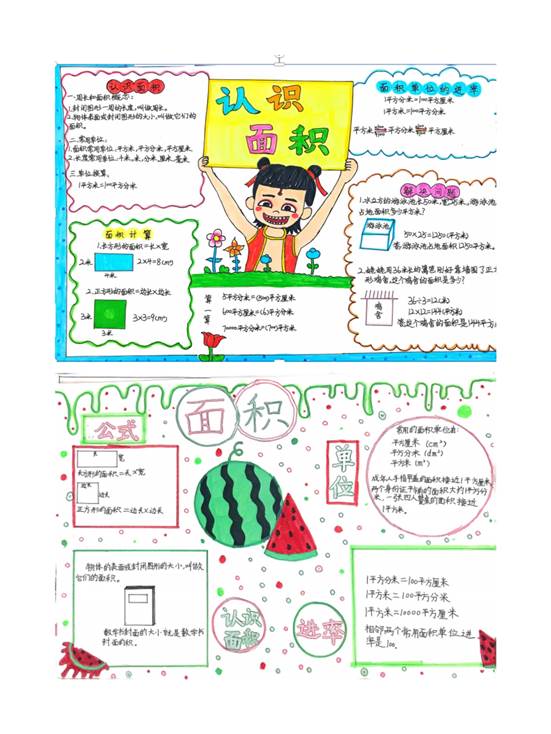 认识面积
一.周长和面积概念:
1.封闭图形一周的长度,叫做周长。
2.物体表面或封闭图形的大小,叫做它们的面积。
二.常用单位:
1.面积常用单位:平方米,平方分米,平方厘米。
2.长度常用单位:千米,米,分米,厘米,毫米
三.单位换算.
1平方米=100平方分米
认识
面积
面积单位的进率
1平方分米=100平方厘米
1平方米=100平方分米
平方米 平方分米 平方厘米
面积计算
1.长方形的面积=长×宽
2米
4米
2×4=8(cm)
2.正方形的面积=边长×边长
3米
3米
3×3=9(cm)
第一第
5平方分米=(500)平方厘米
600平方厘米=(6)平方分米
70000平方厘米=(7)平方米
解决问题
1.水立方的游泳池长50米,宽25米,游泳池占地面积多少平方米?
游泳池
50×25=1250(平方米)
答:游泳池占地面积1250平方米。
用36米长的篱笆刚好靠墙围了正方形鸡舍,这个鸡舍的面积是多少?
鸡舍
36÷3=12(米)
12×12=144(平方米)
答:这个鸡舍的面积是144平方
面积
公式
长
宽
长方形的面积=长×宽
边长
边长
正方形的面积=边长×边长
单位
常用的面积单位有:
平方厘米 (cm²)
平方分米 (dm²)
平方米 (m²)
成年人手指甲盖的面积接近1平方厘米,
的面积大约1平方分米,一张四人餐桌的面积接近1平方米。
物体的表面或封闭图形的大小,叫做
它们的面积。
数学书封面的大小就是数学书
封面的面积。
认识
面积
进率
1平方分米=100平方厘米
1平方米=100平方分米
1平方米=10000平方厘米
相邻两个常用面积单位进
率是100.